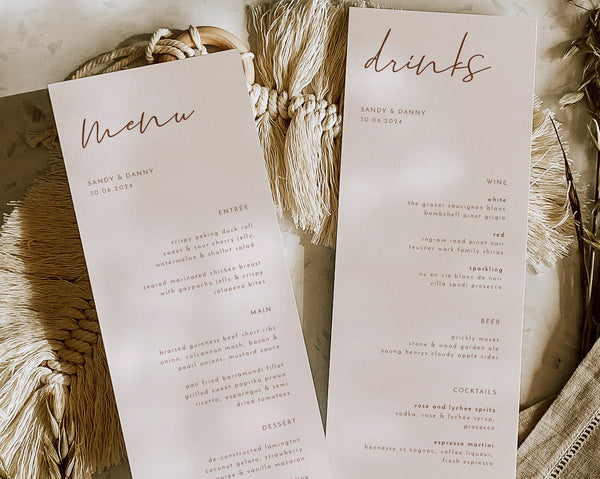 menu
SANDY & DANNY
30.06.2024
ENTREE
crispy peking duck roll
sweet & sour cherry jelly,
watermelon & shallot salad
seared marinated chicken breast
with gazpacho jelly & crispy
jalapeno bites
MAIN
braised guinness beef short ribs
onion, colcannon mash, bacon &
pearl onions, mustard sauce
pan fried barramundi fillet
grilled sweet paprika prawn
risotto, asparagus & semi
dried tomatoes
DESSERT
de-constructed lamington
coconut gelato, strawberry
puree & vanilla macaron
drinks
SANDY & DANNY
30.06.2024
WINE
white
the grazer sauvignon blanc
bombshell pinot grigio
red
ingram road pinot noir
teusner wark family shiraz
sparkling
nv en vie blanc de noir
villa sandi prosecco
BEER
prickly moses
stone & wood garden ale
young henrys cloudy apple cider
COCKTAILS
rose and lychee sprits
vodka, rose & lychee syrup,
prosecco
espresso martini
hennessy vs cognac, coffee liqueur,
fresh espresso